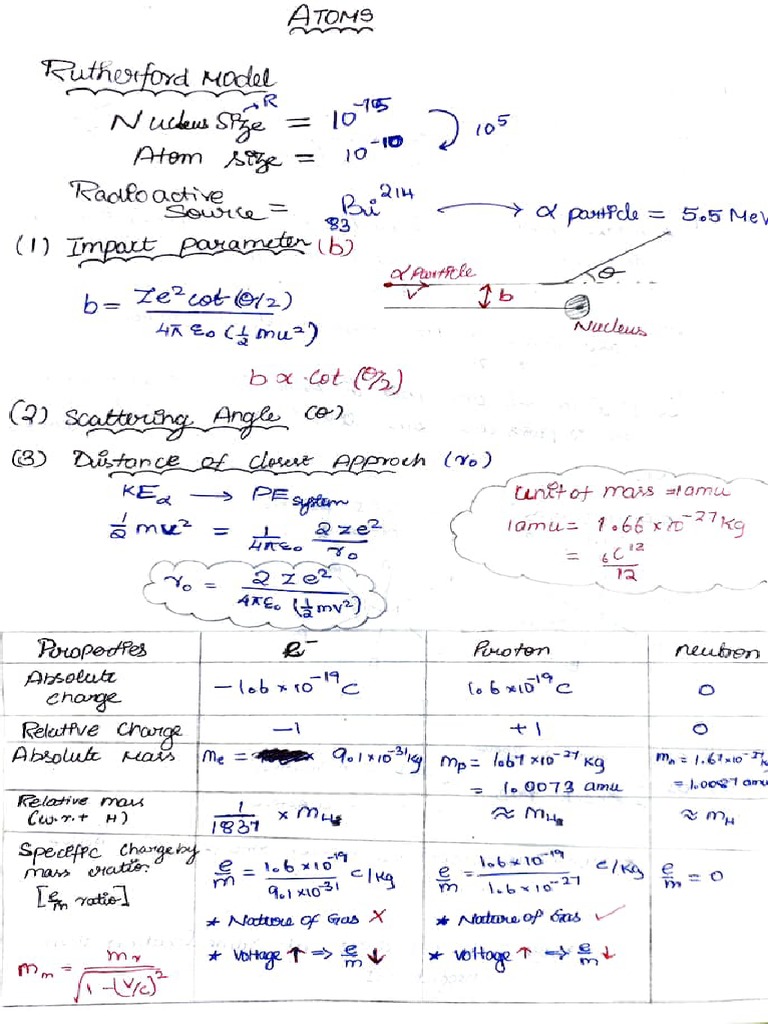 ATOMS
Rutherford Model
Nucleus Size → R = 10⁻¹⁵
Atom size = 10⁻¹⁰
10⁵
Radioactive Source = ₈₃Bi²¹⁴ → α particle = 5.5 MeV
(1) Impact parameter (b)
b = Ze² cot(θ/2) / 4π ε₀ (½ mu²)
α particle
v
b
θ
Nucleus
b α cot (θ/2)
(2) Scattering Angle (θ)
(3) Distance of Closest Approch (r₀)
KEα → PE system
½ mv² = 1/4πε₀ 2ze²/r₀
r₀ = 2ze² / 4πε₀ (½mv²)
Unit of mass = 1amu
1amu = 1.66 × 10⁻²⁷ Kg
= ₆C¹²/12
Properties | e⁻ | Proton | neutron
Absolute charge | −1.6 × 10⁻¹⁹ C | 1.6 × 10⁻¹⁹ C | 0
Relative Charge | −1 | +1 | 0
Absolute Mass | me = × 9.1 × 10⁻³¹ kg | mp = 1.67 × 10⁻²⁷ kg = 1.0073 amu | mn = 1.67 × 10⁻²⁷ k = 1.0087 amu
Relative mass (w.r.t H) | 1/1837 × mH | ≈ mH | ≈ mH
Specific charge by mass ratio. [e/m ratio] | e/m = 1.6 × 10⁻¹⁹ / 9.1 × 10⁻³¹ c/kg | e/m = 1.6 × 10⁻¹⁹ / 1.6 × 10⁻²⁷ c/kg | e/m = 0
* Nature of Gas ✗ | * Nature of Gas ✓
* Voltage ↑ ⇒ e/m ↓ | * Voltage ↑ ⇒ e/m ↓
mm = mr / √1 − (v/c)²